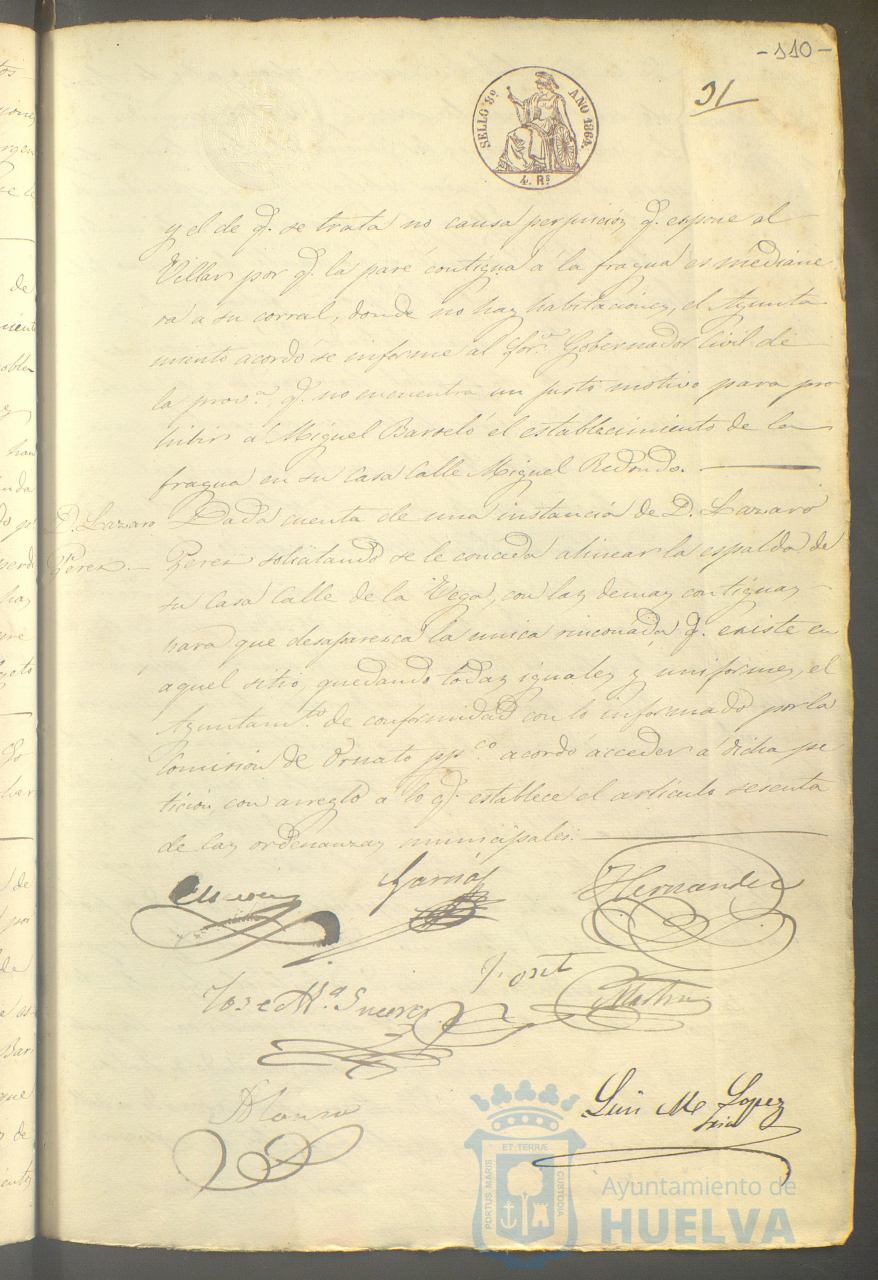 -110-
91
SELLO 8º AÑO 1864.
4. Rs
y el de q. se trata no causa perjuicion q. espone al
Villar por q. la paré contigua á la fragua es mediane
ra a su corral, donde no hay habitaciones, el Ayunta
miento acordó se informe al Sor. Gobernador Civil de
la prova. q. no encuentra un justo motivo para pro
hibir á Miguel Barceló el establecimiento de la
fragua en su casa calle Miguel Redondo.
D. Lazaro Perez.
Dada cuenta de una instancia de D. Lazaro
Perez solicitando se le conceda alinear la espalda de
su casa calle de la Vega, con las demas contiguas
para que desaparezca la unica rinconada q. existe en
aquel sitio, quedando todas iguales y uniformes, el
Ayuntamto. de conformidad con lo informado por la
Comision de Ornato ppco. acordó acceder á dicha pe
ticion, con arreglo a lo q. establece el articulo sesenta
de las ordenanzas municipales.
Garcia
Hernandez
Jose Ma. Suero
Alonso
Luis M Lopez
Srio
PORTUS MARIS ET TERRÆ CUSTODIA
Ayuntamiento de
HUELVA